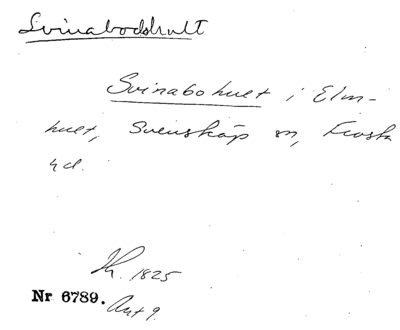 Svinabodshult
Svinabohult i Elm-
hult, Svensköp sn, Frosta
hd.
1825
Nr 6789. Avt 9.